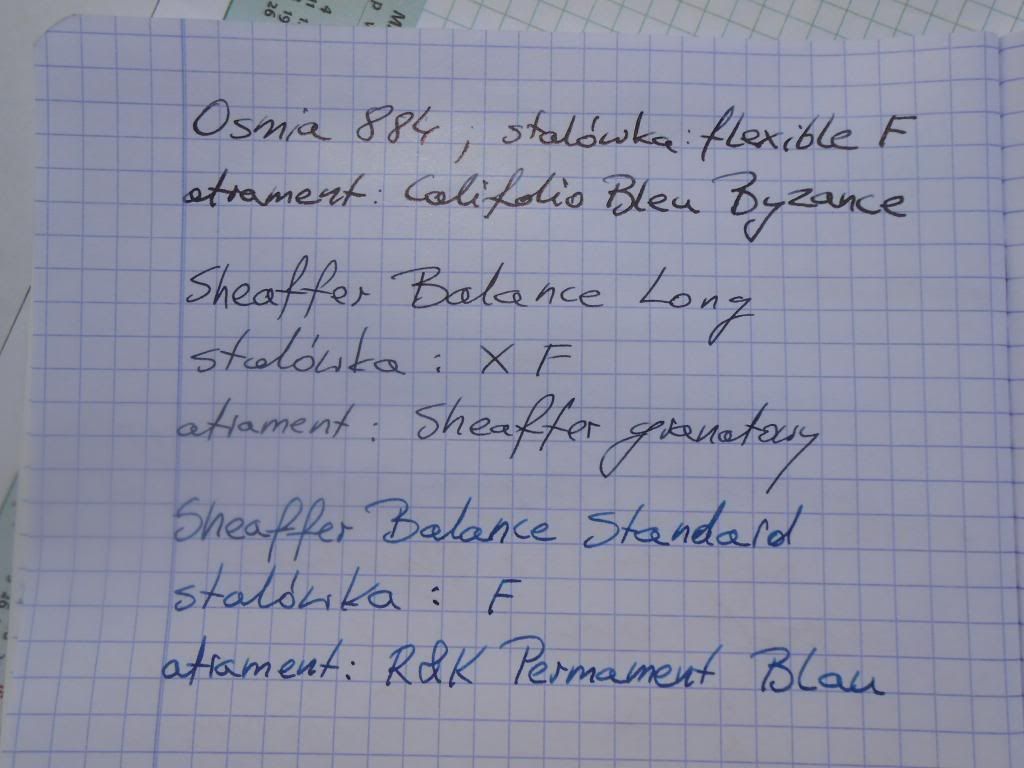 Osmia 884, stalówka: flexible F
atrament: Califolio Bleu Byzance
Sheaffer Balance Long
stalówka: XF
atrament: Sheaffer granatowy
Sheaffer Balance Standard
stalówka: F
atrament: R&K Permament Blau